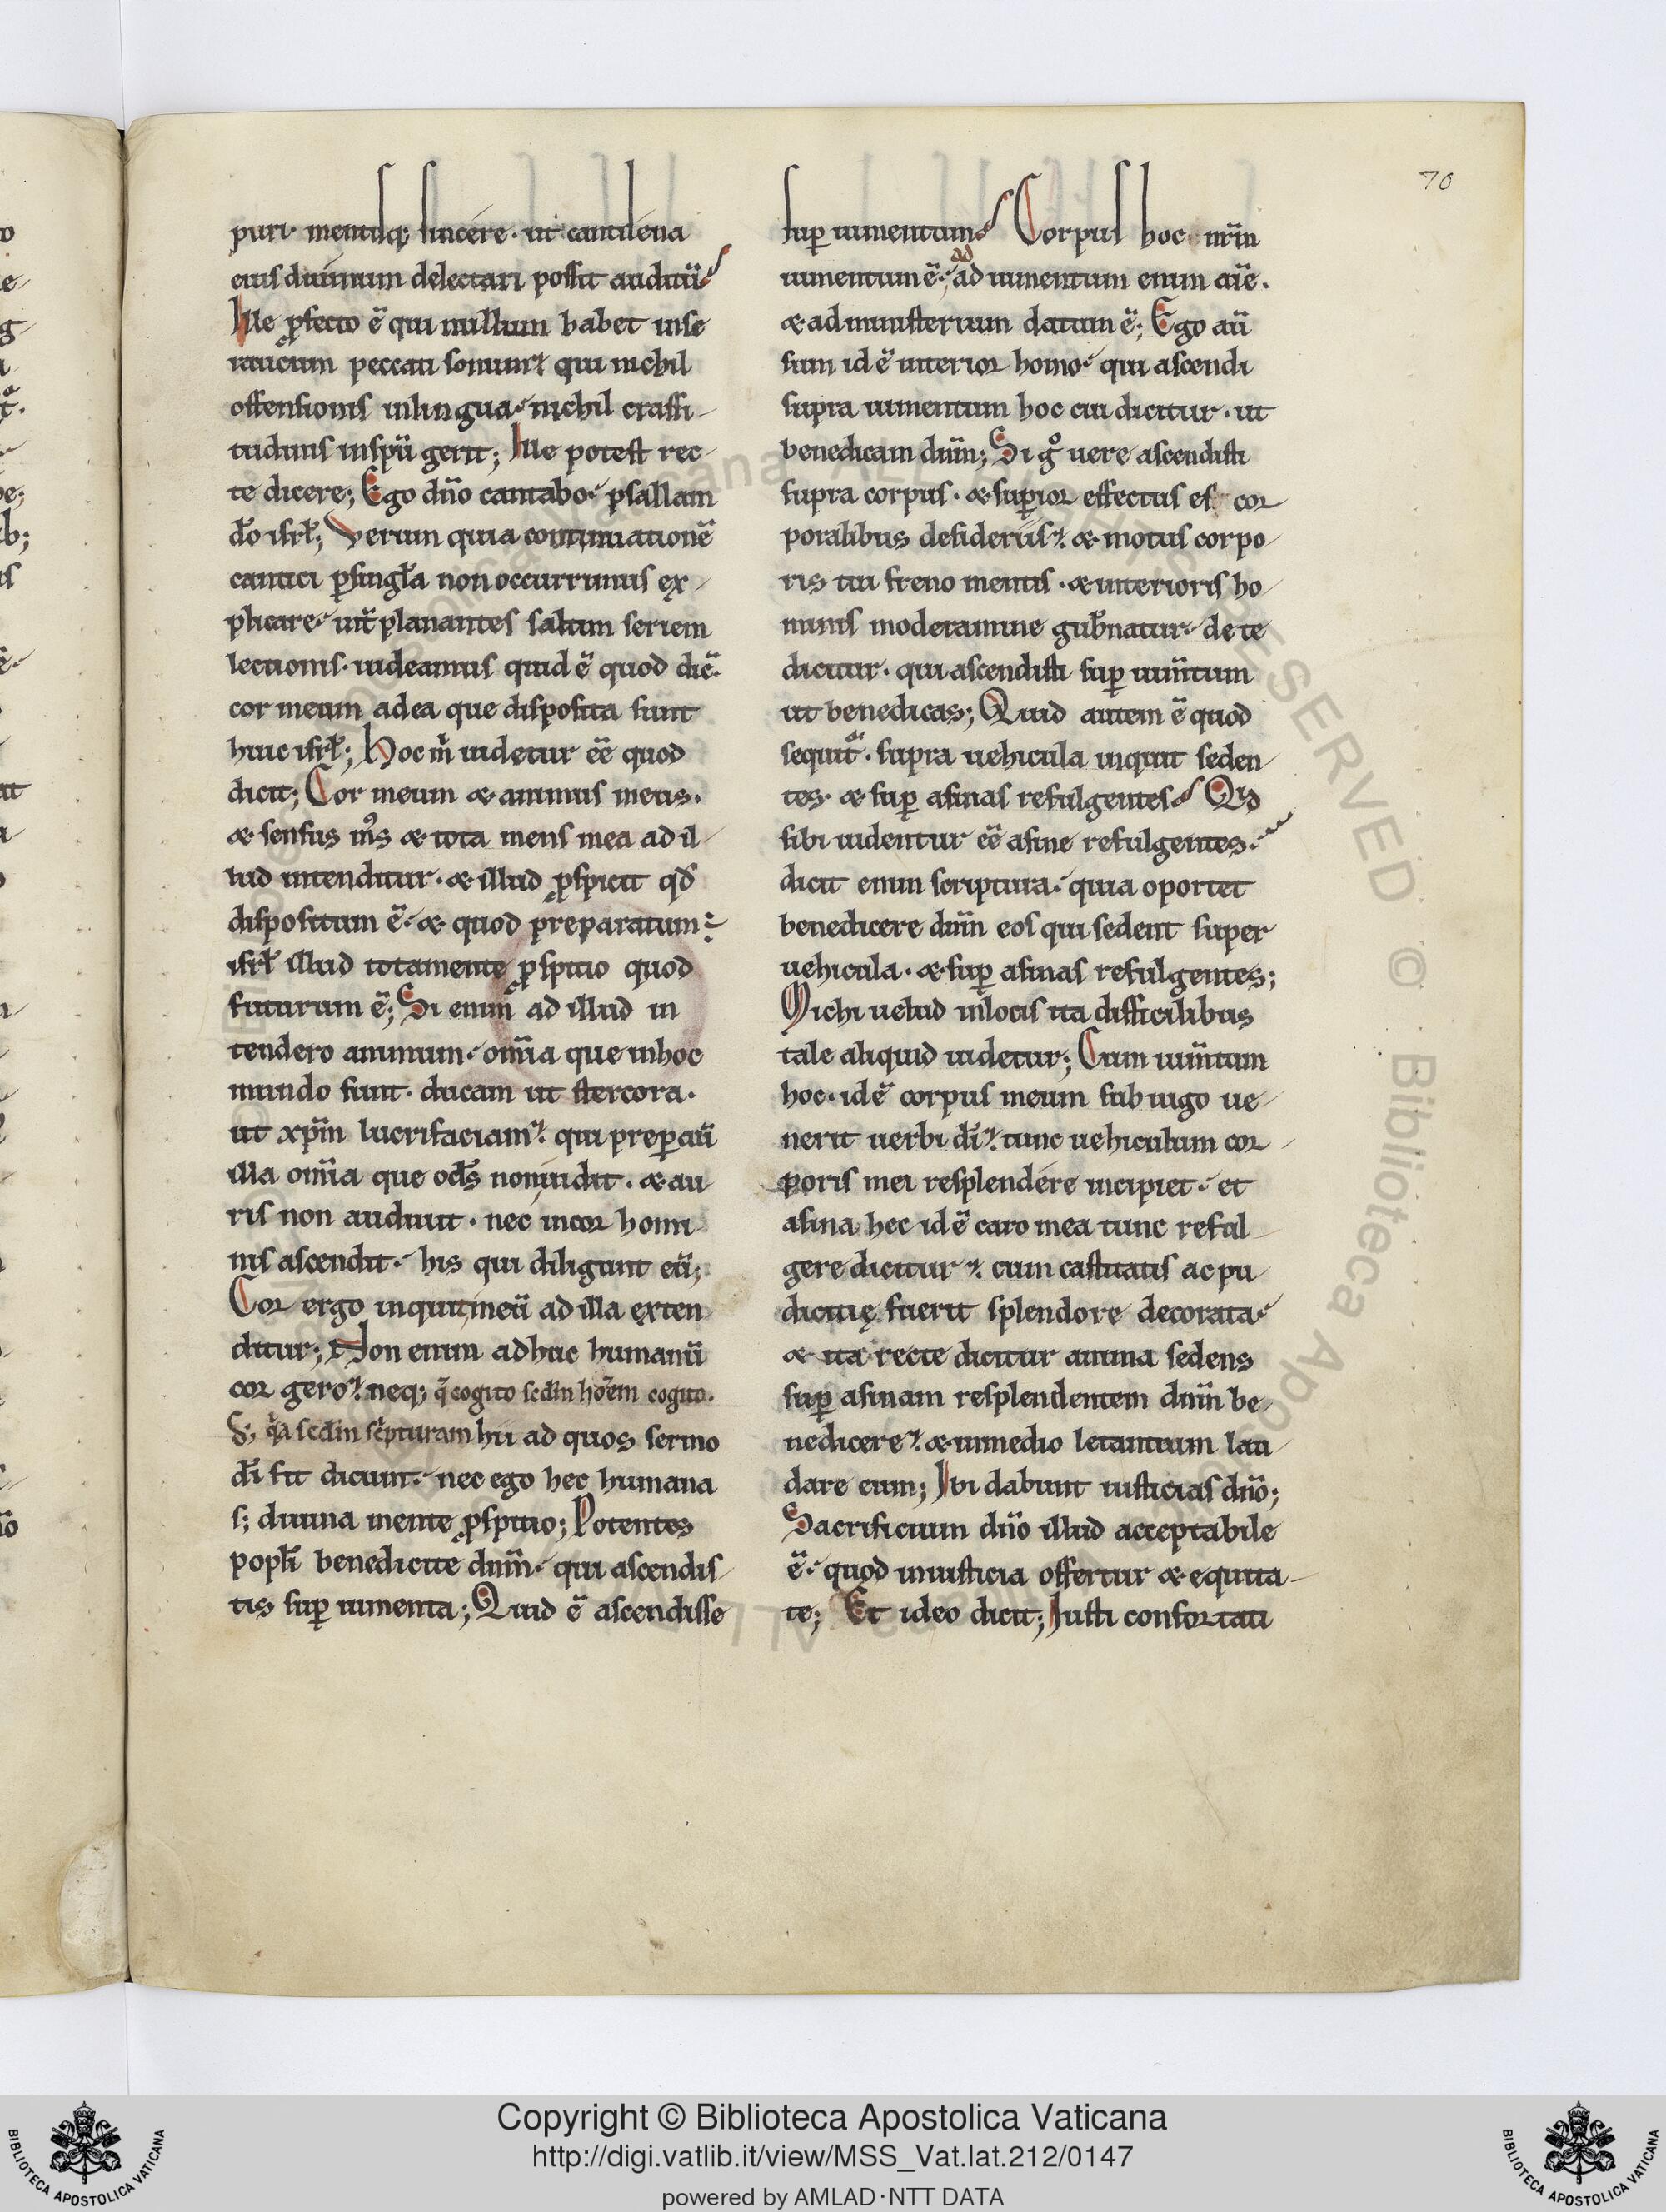 70
puri· mentisq; sincere· ut cantilena
eius diuinum delectari possit auditū
Ille ꝓfecto ē qui nullum habet inse
raucum peccati sonum qui nichil
offensionis inlingua nichil crassi-
tudinis inspū gerit; Ille potest rec-
te dicere; Ego dn̄o cantabo psallam
do̅ isrl̅; Verum quia continuationē
cantici ꝑsingla non occurrimus ex-
plicare planantes saltim seriem
lectionis· uideamus quid ē quod dic̄
cor meum adea que disposita sunt
huic isrl̅; Hoc m̅ uidetur eē quod
dicit; Cor meum & animus meus·
& sensus m̅s & tota mens mea ad il-
lud intenditur· & illud ꝓspicit qd̅
dispositum ē· & quod preparatum ÷
isrl̅ illud totamente ꝓspicio quod
futurum ē; Si enim ad illud in
tendero animum· om̄ia que inhoc
mundo sunt· ducam ut stercora·
ut xp̄m lucrifaciam· qui prepauit
illa om̄ia que ocls̅ nonuidit· & au
ris non audiuit· nec incor homi
nis ascendit· his qui diligunt eū;
Cor ergo inquit meū ad illa exten
ditur; Non enim adhuc humanū
cor gero neq; q̄ cogito scdm̄ hoēm cogito·
S; q̄a scdm̄ scripturam hii ad quos sermo
dī fit dicunt· nec ego hec humana
s; diuina mente ꝓspicio; Potentes
popli̅ benedicite dnm̄· qui ascendis-
tis suꝑ iumenta; Quid ē ascendisse
suꝑ iumentum Corpus hoc nr̄m
iumentum ē· ad ad iumentum enim aīe·
& ad ministerium datum ē; Ego aū
sum id ē interior homo qui ascendi
supra iumentum hoc cui dicitur· ut
benedicam dn̄m; Si g̊ uere ascendisti
supra corpus· & suꝑior effectus es cor
poralibus desideriis· & motus corpo-
ris tui freno mentis· & interioris ho-
minis moderamine gub̅natur· de te
dicitur· qui ascendisti suꝑ ium̄tum
ut benedicas; Quid autem ē quod
sequit̄· supra uehicula inquit seden-
tes· & suꝑ asinas refulgentes Qd
sibi uidentur eē asine refulgentes·
dicit enim scriptura· quia oportet
benedicere dn̄m eos qui sedent super
uehicula· & suꝑ asinas refulgentes;
Michi uelud inlocis ita difficilibus
tale aliquid uidetur; Cum ium̄tum
hoc· idē corpus meum sub iugo ue-
nerit uerbi dī· tunc uehiculum cor-
poris mei resplendere incipiet· et
asina hec id ē caro mea tunc reful-
gere dicitur· cum castitatis ac pu-
dicitię fuerit splendore decorata
& ita recte dicitur anima sedens
suꝑ asinam resplendentem dn̄m be-
nedicere· & inmedio letantium lau-
dare eum; Ibi dabunt iusticias dn̄o;
Sacrificium dn̄o illud acceptabile
ē· quod iniusticia offertur & equita-
te; Et ideo dicit; Iusti confortati
Copyright © Biblioteca Apostolica Vaticana
http://digi.vatlib.it/view/MSS_Vat.lat.212/0147
powered by AMLAD·NTT DATA
BIBLIOTECA APOSTOLICA VATICANA
BIBLIOTECA APOSTOLICA VATICANA